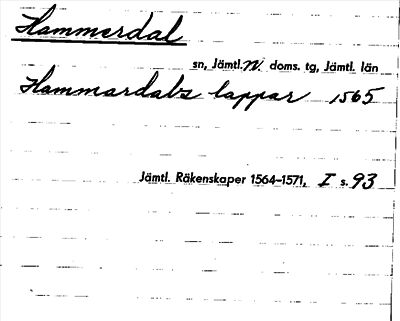 Hammerdal
sn, Jämtl. N. doms. tg, Jämtl. län
Hammardals lappar 1565
Jämtl. Räkenskaper 1564-1571, I s. 93